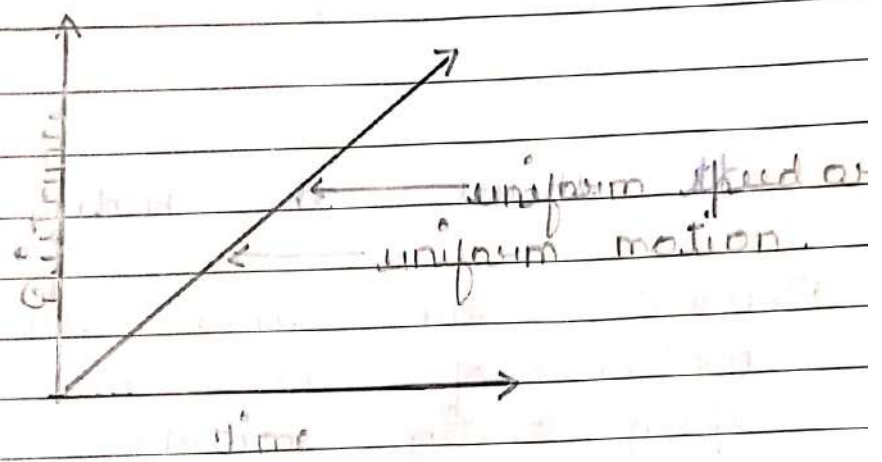 Distance
uniform speed or
uniform motion.
Time